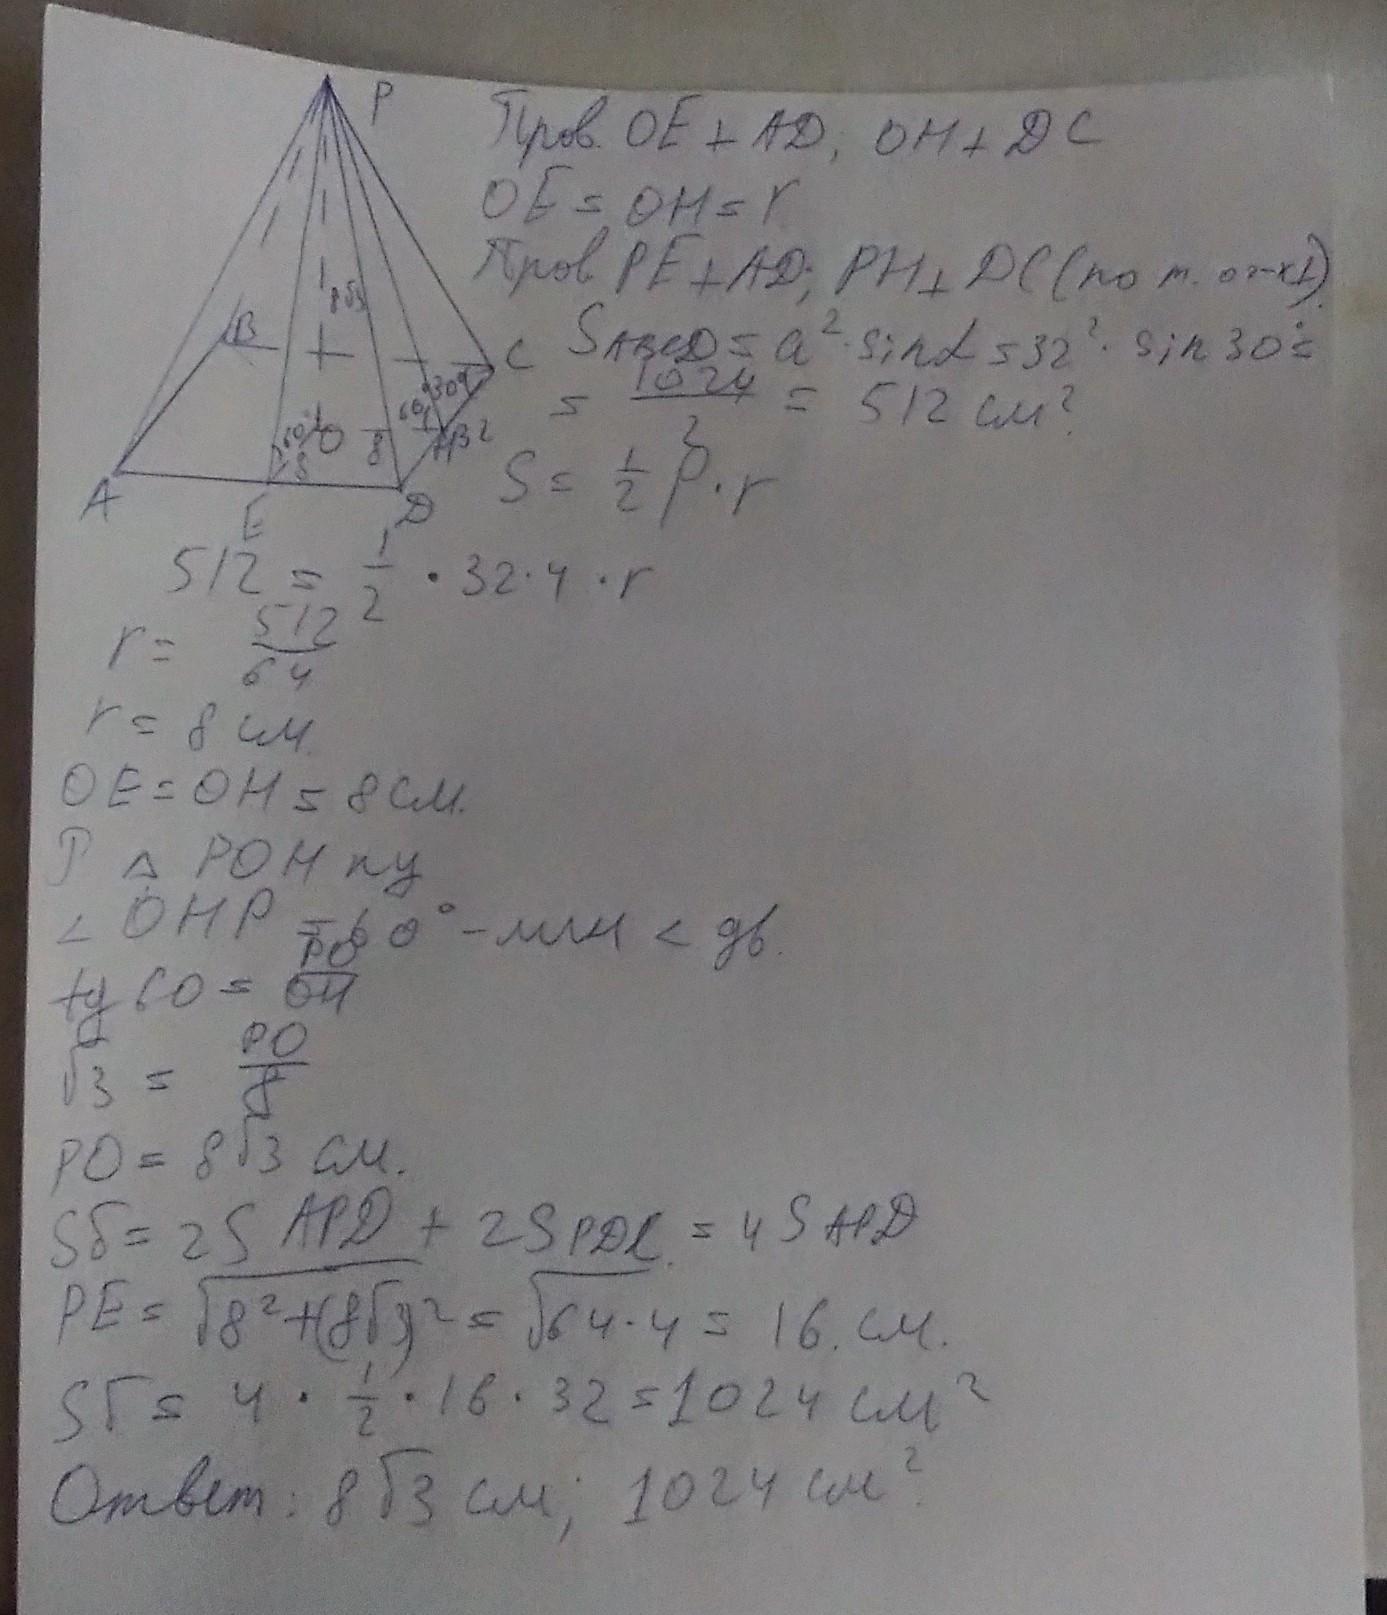 P
Пров. OE ⊥ AD; OH ⊥ DC
OE = OH = r
Пров PE ⊥ AD; PH ⊥ DC (по т. о 3-х ⊥)
8√3
B
C
S ABCD = a² · sin α = 32² · sin 30° =
= 1024/2 = 512 см²
30°
60°
60°
O
8
8
H
32
A
E
D
S = 1/2 P · r
512 = 1/2 · 32 · 4 · r
r = 512/64
r = 8 см.
OE = OH = 8 см.
Р △ POH п/у
∠ OHP = 60° - лин ∠ дв.
tg 60 = PO/OH
√3 = PO/8
PO = 8√3 см.
Sб = 2S APD + 2S PDC = 4S APD
PE = √8² + (8√3)² = √64 · 4 = 16 см.
Sб = 4 · 1/2 · 16 · 32 = 1024 см²
Ответ: 8√3 см; 1024 см².